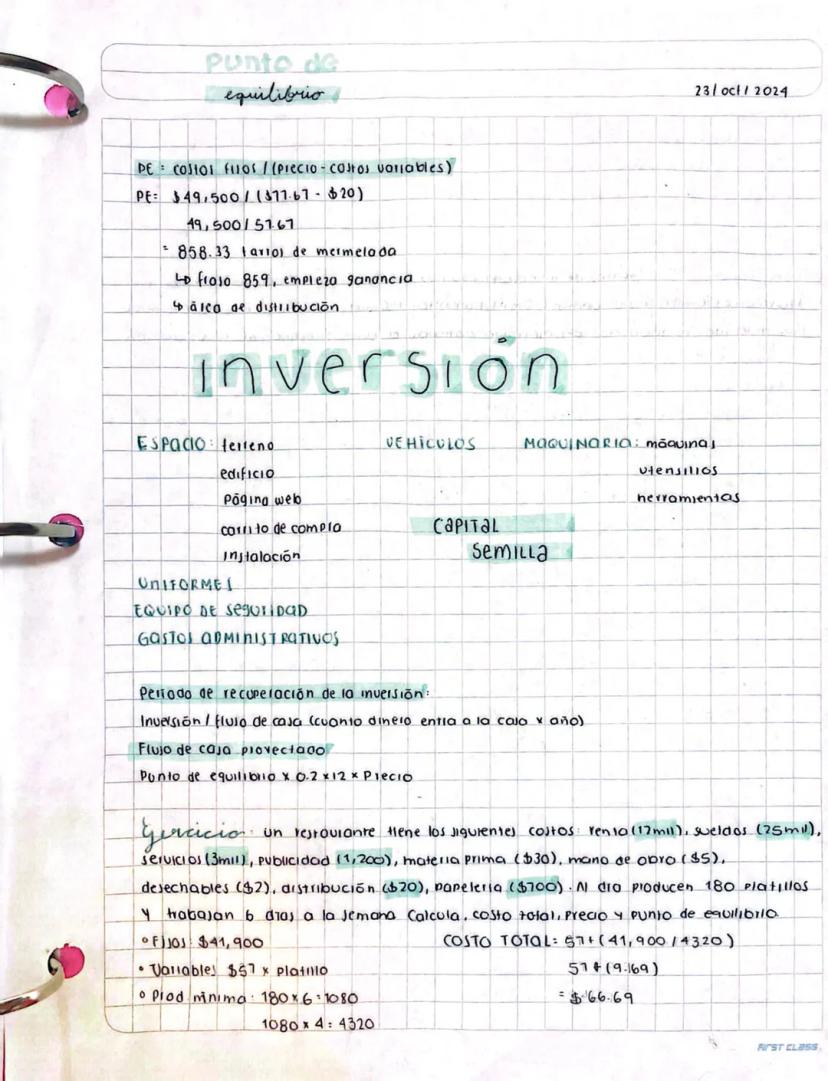 Punto de
equilibrio
23/oct/2024
PE = costos fijos / (precio - costos variables)
PE= $49,500 / ($77.67 - $20)
49,500 / 57.67
= 858.33 tarros de mermelada
↳ frasco 859, empieza ganancia
↳ área de distribución
inversión
ESPACIO: terreno
VEHÍCULOS
MAQUINARIA: máquinas
edificio
utensilios
Página web
herramientas
carrito de compra
CAPITAL
instalación
SEMILLA
UNIFORMES
EQUIPO DE SEGURIDAD
GASTOS ADMINISTRATIVOS
Periodo de recuperación de la inversión:
Inversión / flujo de caja (cuanto dinero entra a la caja x año)
Flujo de caja proyectado
Punto de equilibrio x 0.2 x 12 x Precio
Ejercicio: un restaurante tiene los siguientes costos: renta (12mil), sueldos (25mil),
servicios (3mil), publicidad (1,200), materia prima ($30), mano de obra ($5),
desechables ($2), distribución ($20), papelería ($700). Al día producen 180 platillos
y trabajan 6 días a la semana. Calcula, costo total, precio y punto de equilibrio
° Fijos: $41,900
COSTO TOTAL= 57+(41,900/4320)
• Variables $57 x platillo
57+(9.169)
° Prod mínima: 180x6=1080
= $66.69
1080 x 4 = 4320
FIRST CLASS